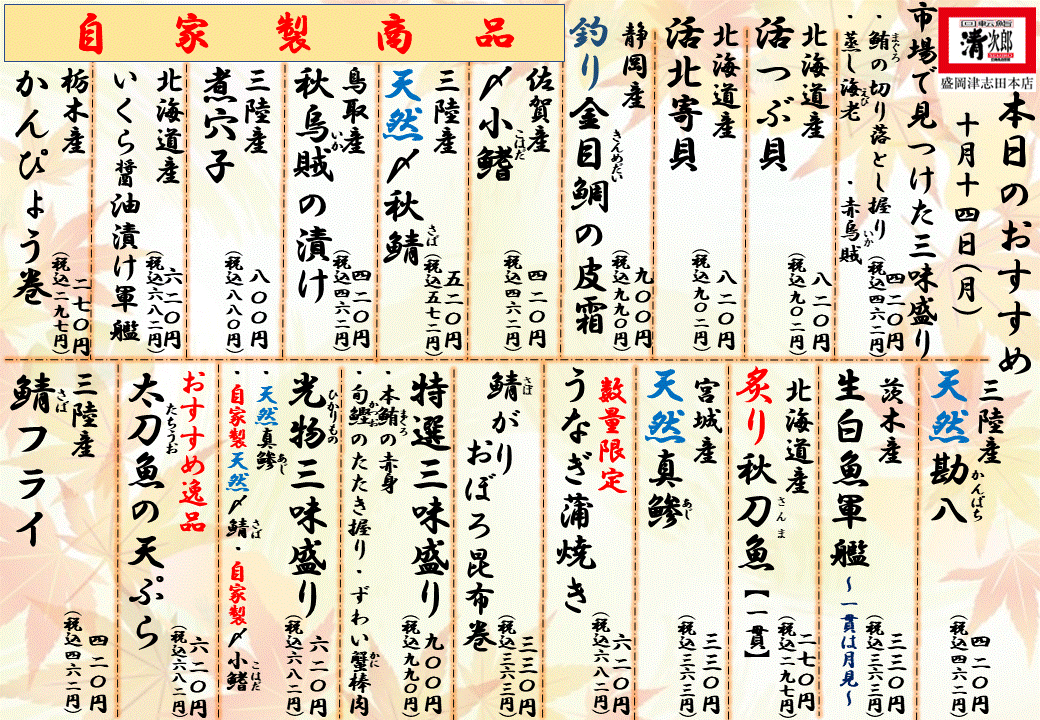 回転鮨
清次郎
盛岡津志田本店
本日のおすすめ
十月十四日(月)
市場で見つけた三味盛り
・鮪の切り落とし握り
まぐろ
・蒸し海老
えび
・赤烏賊
いか
四二〇円
(税込四六二円)
北海道産
活つぶ貝
八二〇円
(税込九〇二円)
北海道産
活北寄貝
八二〇円
(税込九〇二円)
静岡産
釣り金目鯛の皮霜
きんめだい
九〇〇円
(税込九九〇円)
自家製商品
佐賀産
〆小鰭
こはだ
四二〇円
(税込四六二円)
三陸産
天然〆秋鯖
さば
五二〇円
(税込五七二円)
鳥取産
秋烏賊の漬け
いか
四二〇円
(税込四六二円)
三陸産
煮穴子
八〇〇円
(税込八八〇円)
北海道産
いくら醤油漬け軍艦
六二〇円
(税込六八二円)
栃木産
かんぴょう巻
二七〇円
(税込二九七円)
三陸産
天然勘八
かんぱち
四二〇円
(税込四六二円)
茨木産
生白魚軍艦
~一貫は月見~
三三〇円
(税込三六三円)
北海道産
炙り秋刀魚【一貫】
さんま
二七〇円
(税込二九七円)
宮城産
天然真鯵
あじ
三三〇円
(税込三六三円)
数量限定
うなぎ蒲焼き
六二〇円
(税込六八二円)
鯖がり
さば
おぼろ昆布巻
三三〇円
(税込三六三円)
特選三味盛り
・本鮪の赤身
まぐろ
・旬鰹のたたき握り・ずわい蟹棒肉
かつお
かに
九〇〇円
(税込九九〇円)
光物三味盛り
ひかりもの
・天然真鯵
あじ
・自家製天然〆鯖・自家製〆小鰭
さば
こはだ
六二〇円
(税込六八二円)
おすすめ逸品
太刀魚の天ぷら
たちうお
六二〇円
(税込六八二円)
三陸産
鯖フライ
さば
四二〇円
(税込四六二円)